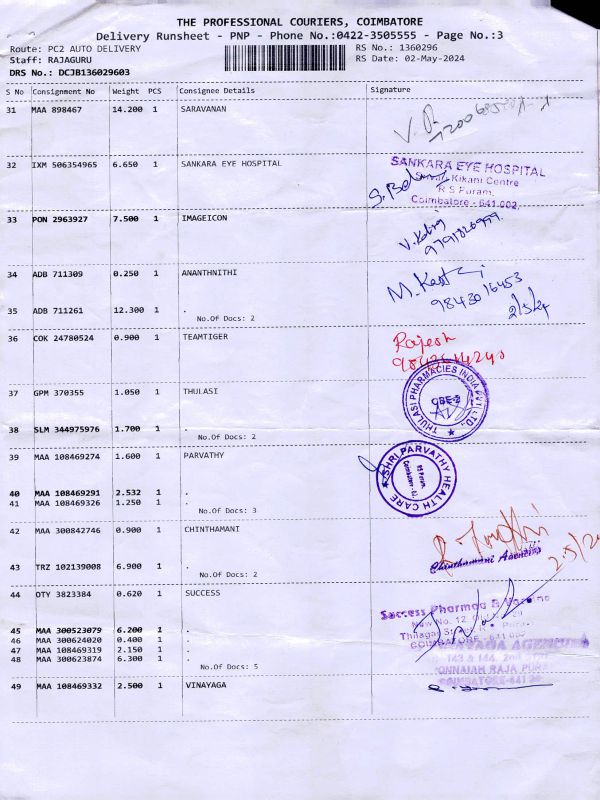 THE PROFESSIONAL COURIERS, COIMBATORE
Delivery Runsheet - PNP - Phone No.:0422-3505555 - Page No.:3
Route: PC2 AUTO DELIVERY RS No.: 1360296
Staff: RAJAGURU RS Date: 02-May-2024
DRS No.: DCJB136029603
S No Consignment No Weight PCS Consignee Details Signature
31 MAA 898467 14.200 1 SARAVANAN
32 IXM 506354965 6.650 1 SANKARA EYE HOSPITAL
SANKARA EYE HOSPITAL
Kikani Centre
R S Puram,
Coimbatore - 641 002
33 PON 2963927 7.500 1 IMAGEICON
34 ADB 711309 0.250 1 ANANTHNITHI
9843016453
2/5/24
35 ADB 711261 12.300 1 .
No.Of Docs: 2
36 COK 24780524 0.900 1 TEAMTIGER
Rajesh
37 GPM 370355 1.050 1 THULASI
THULASI PHARMACIES INDIA PVT. LTD.,
CBE-2
38 SLM 344975976 1.700 1 .
No.Of Docs: 2
39 MAA 108469274 1.600 1 PARVATHY
SHRI PARVATHY HEALTH CARE
RS Puram,
40 MAA 108469291 2.532 1 .
41 MAA 108469326 1.250 1 .
No.Of Docs: 3
42 MAA 300842746 0.900 1 CHINTHAMANI
Chinthamani Agencies
43 TRZ 102139008 6.900 1 .
No.Of Docs: 2
44 OTY 3823384 0.620 1 SUCCESS
Success Pharma
New No. 12
COIMBATORE - 641
45 MAA 300523079 6.200 1 .
46 MAA 300624020 0.400 1 .
47 MAA 108469319 2.150 1 .
48 MAA 300623874 6.300 1 .
No.Of Docs: 5
AGENC
143 & 144,
PONNAIAH RAJA PURAM
COIMBATORE-641
49 MAA 108469332 2.500 1 VINAYAGA